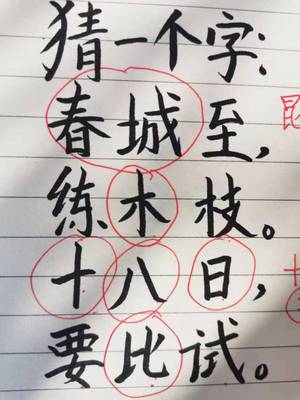 猜一个字:
春城至,
练木枝。
十八日,
要比试。